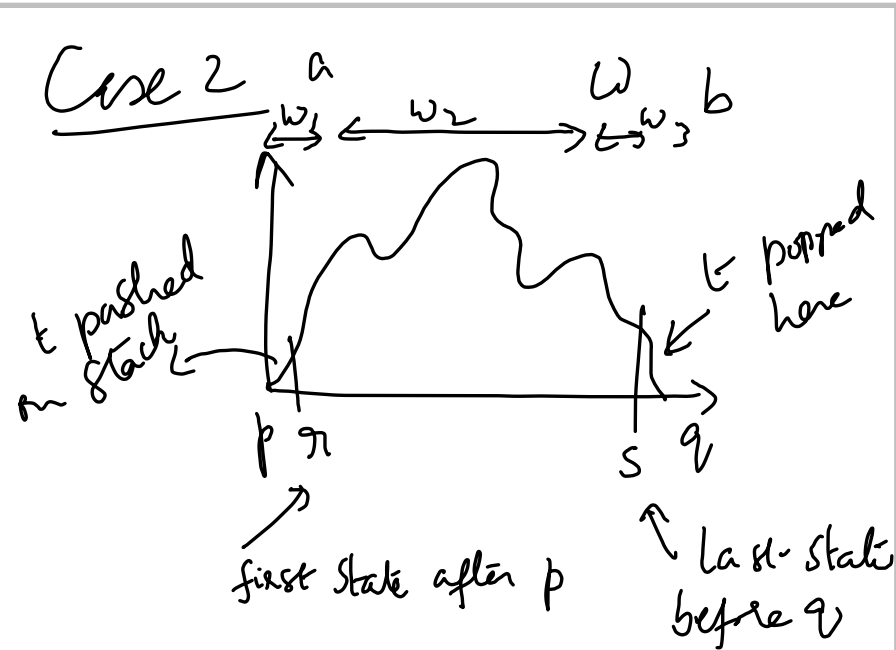 Case 2 a W b
w1 w2 w3
t pushed
on stack
t popped
here
p r s q
first state after p
Last state
before q